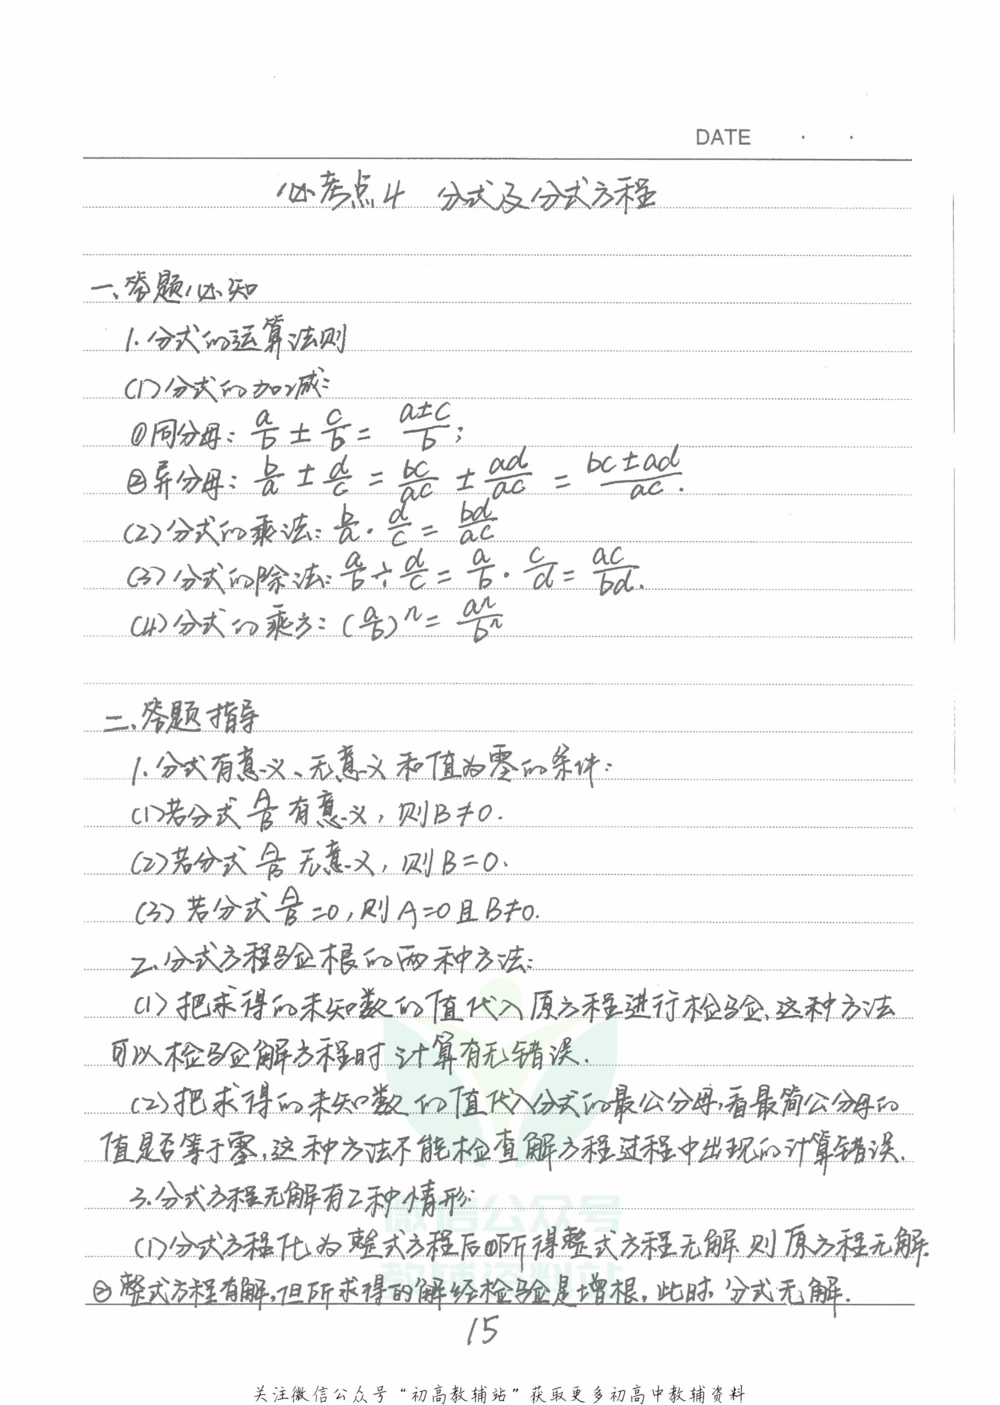 DATE · ·
必考点4 分式及分式方程
一、答题必知
1.分式的运算法则
(1)分式的加减:
①同分母: a/b ± c/b = (a±c)/b;
②异分母: b/a ± d/c = bc/ac ± ad/ac = (bc±ad)/ac.
(2)分式的乘法: b/a · d/c = bd/ac
(3)分式的除法: a/b ÷ d/c = a/b · c/d = ac/bd.
(4)分式的乘方: (a/b)^n = a^n/b^n
二、答题指导
1.分式有意义、无意义和值为零的条件:
(1)若分式 A/B 有意义, 则B≠0.
(2)若分式 A/B 无意义, 则B=0.
(3)若分式 A/B =0, 则A=0且B≠0.
2.分式方程验根的两种方法:
(1)把求得的未知数的值代入原方程进行检验,这种方法
可以检验解方程时计算有无错误.
(2)把求得的未知数的值代入分式的最公分母,看最简公分母的
值是否等于零,这种方法不能检查解方程过程中出现的计算错误.
3.分式方程无解有2种情形:
(1)分式方程化为整式方程后①所得整式方程无解,则原方程无解.
②整式方程有解,但所求得的解经检验是增根,此时,分式无解.
15
微信公众号
教辅资料站
关注微信公众号“初高教辅站”获取更多初高中教辅资料